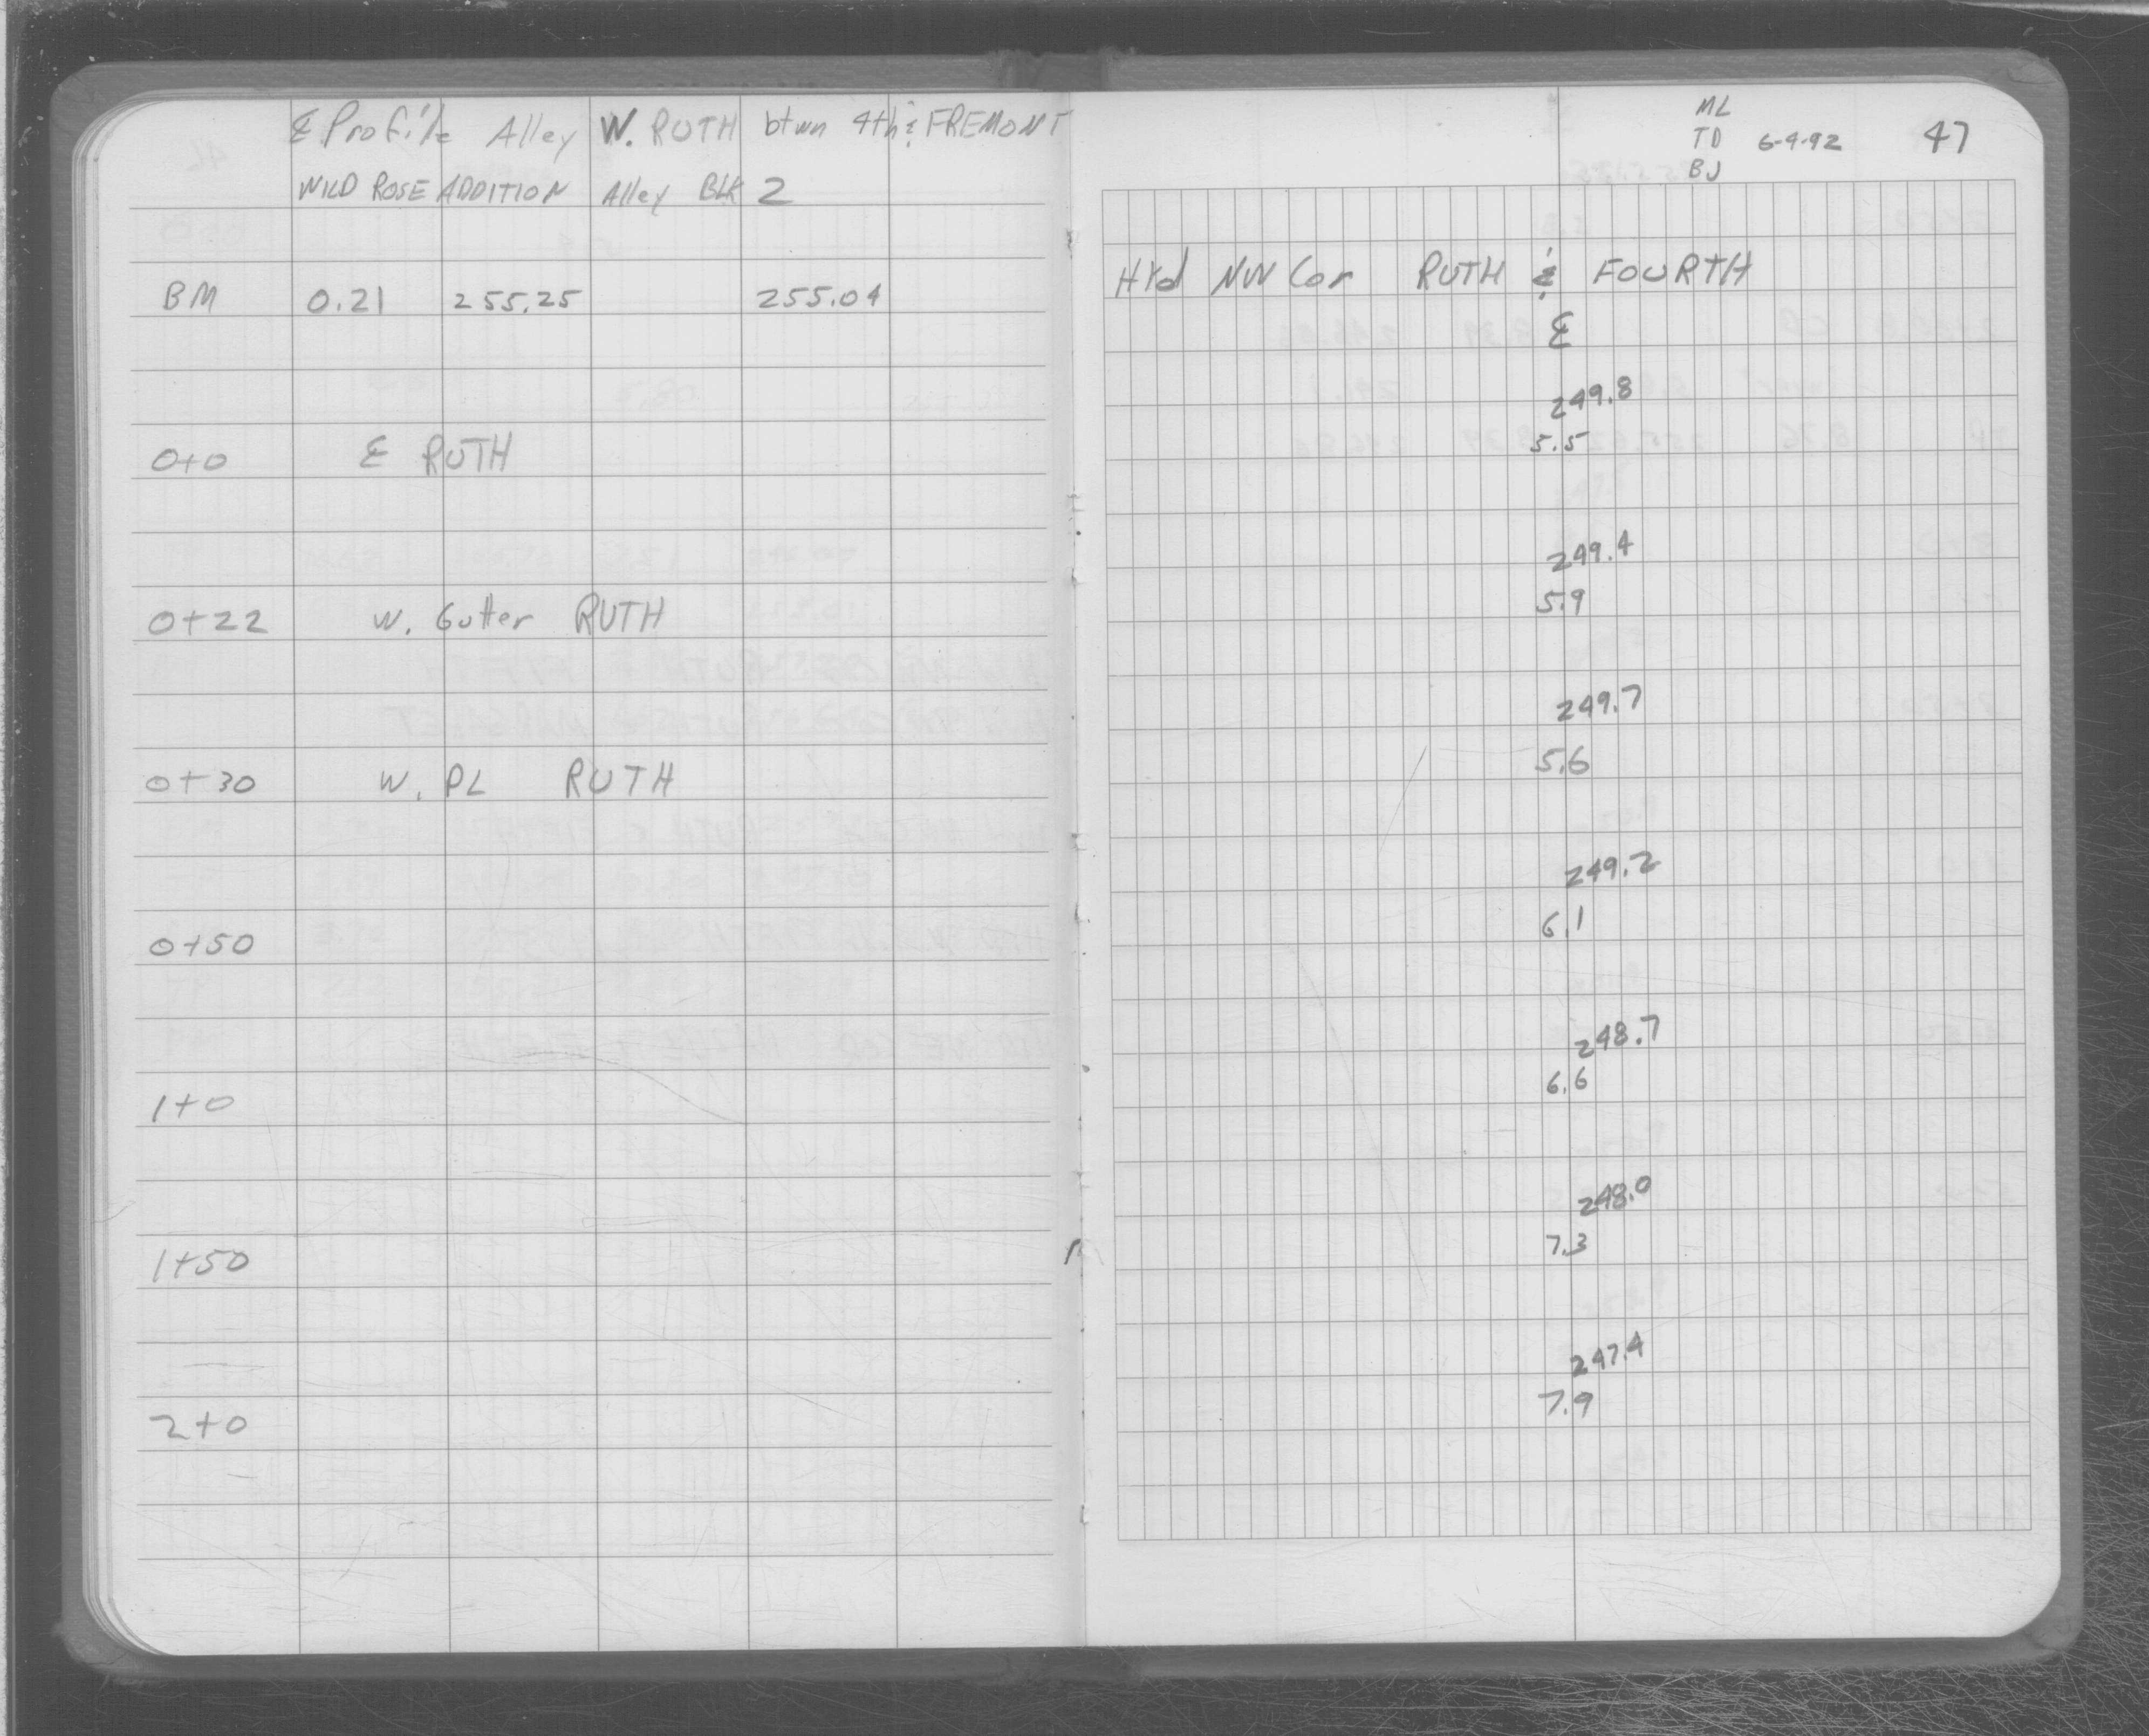 ℄ Profile Alley W. RUTH btwn 4th & FREMONT
WILD ROSE ADDITION Alley Blk 2
BM 0.21 255.25 255.04
0+0 ℄ RUTH
0+22 W. Gutter RUTH
0+30 W. PL RUTH
0+50
1+0
1+50
2+0
ML
TD 6-9-92 47
BJ
Hyd NW Cor RUTH & FOURTH
℄
249.8
5.5
249.4
5.9
249.7
5.6
249.2
6.1
248.7
6.6
248.0
7.3
247.4
7.9